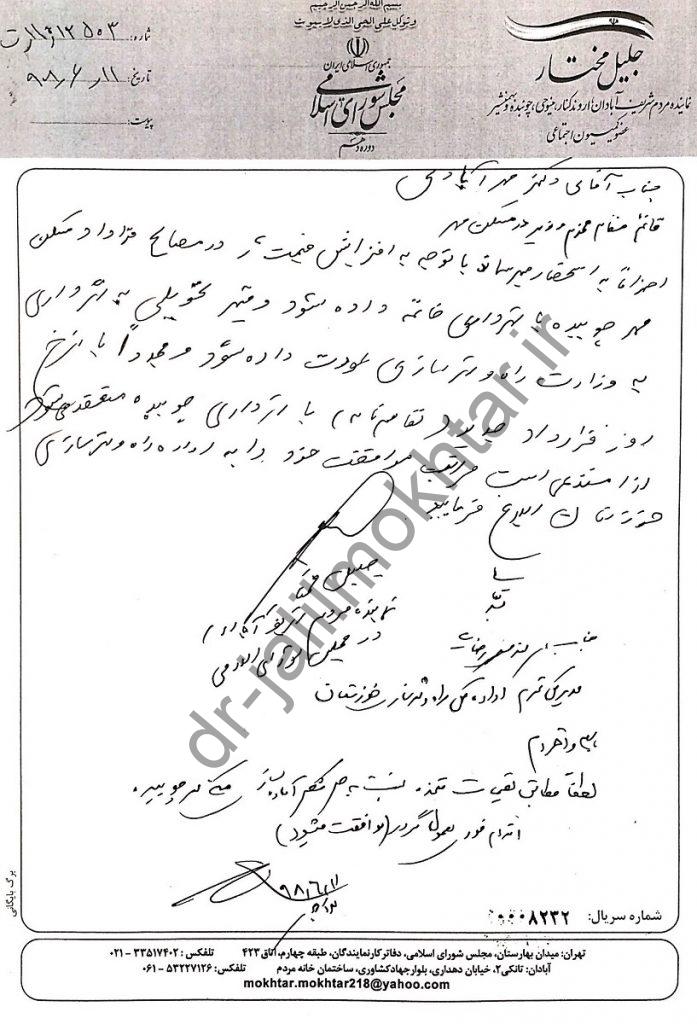 بسم الله الرحمن الرحیم
و توکل علی الحی الذی لا یموت
جمهوری اسلامی ایران
مجلس شورای اسلامی
دوره دهم
جلیل مختار
نماینده مردم شریف آبادان، اروندکنار، مینوحی، چوئبده و بهمنشیر
عضو کمیسیون اجتماعی
شماره: ۱۲۵۰۳
تاریخ: ۹۸/۶/۱۱
پیوست:
جناب آقای دکتر مهرآبادی
قائم مقام محترم وزیر در مسکن مهر
احتراماً به استحضار میرساند با توجه به افزایش قیمت در مصالح قرارداد مسکن
مهر چوئبده با شهرداری خاتمه داده شود و تحویلی به شهرداری
به وزارت راه و شهرسازی عودت داده شود و مجدداً با نرخ
روز قرارداد جدید (تفاهم نامه) با شهرداری چوئبده منعقد می شود
لذا مستدعی است مراتب موافقت خود را به اداره راه و شهرسازی
خوزستان ابلاغ فرمایید
جلیل مختار
نماینده مردم شریف آبادان
در مجلس شورای اسلامی
جناب
مدیرکل محترم اداره کل راه و شهرسازی خوزستان
با سلام و احترام
لطفاً مطابق نسبت به
اقدام فوری معمول گردد (موافقت میشود)
۹۸/۶/۱۱
برگ بایگانی
شماره سریال: ۰۰۰۸۲۳۲
تهران: میدان بهارستان، مجلس شورای اسلامی، دفاتر کار نمایندگان، طبقه چهارم، اتاق ۴۲۳ تلفکس: ۳۳۵۱۷۴۰۲ - ۰۲۱
آبادان: تانکی ۲، خیابان دهداری، بلوار جهاد کشاورزی، ساختمان خانه مردم تلفکس: ۵۳۲۲۷۱۲۶ - ۰۶۱
mokhtar.mokhtar218@yahoo.com
dr-jalilmokhtar.ir